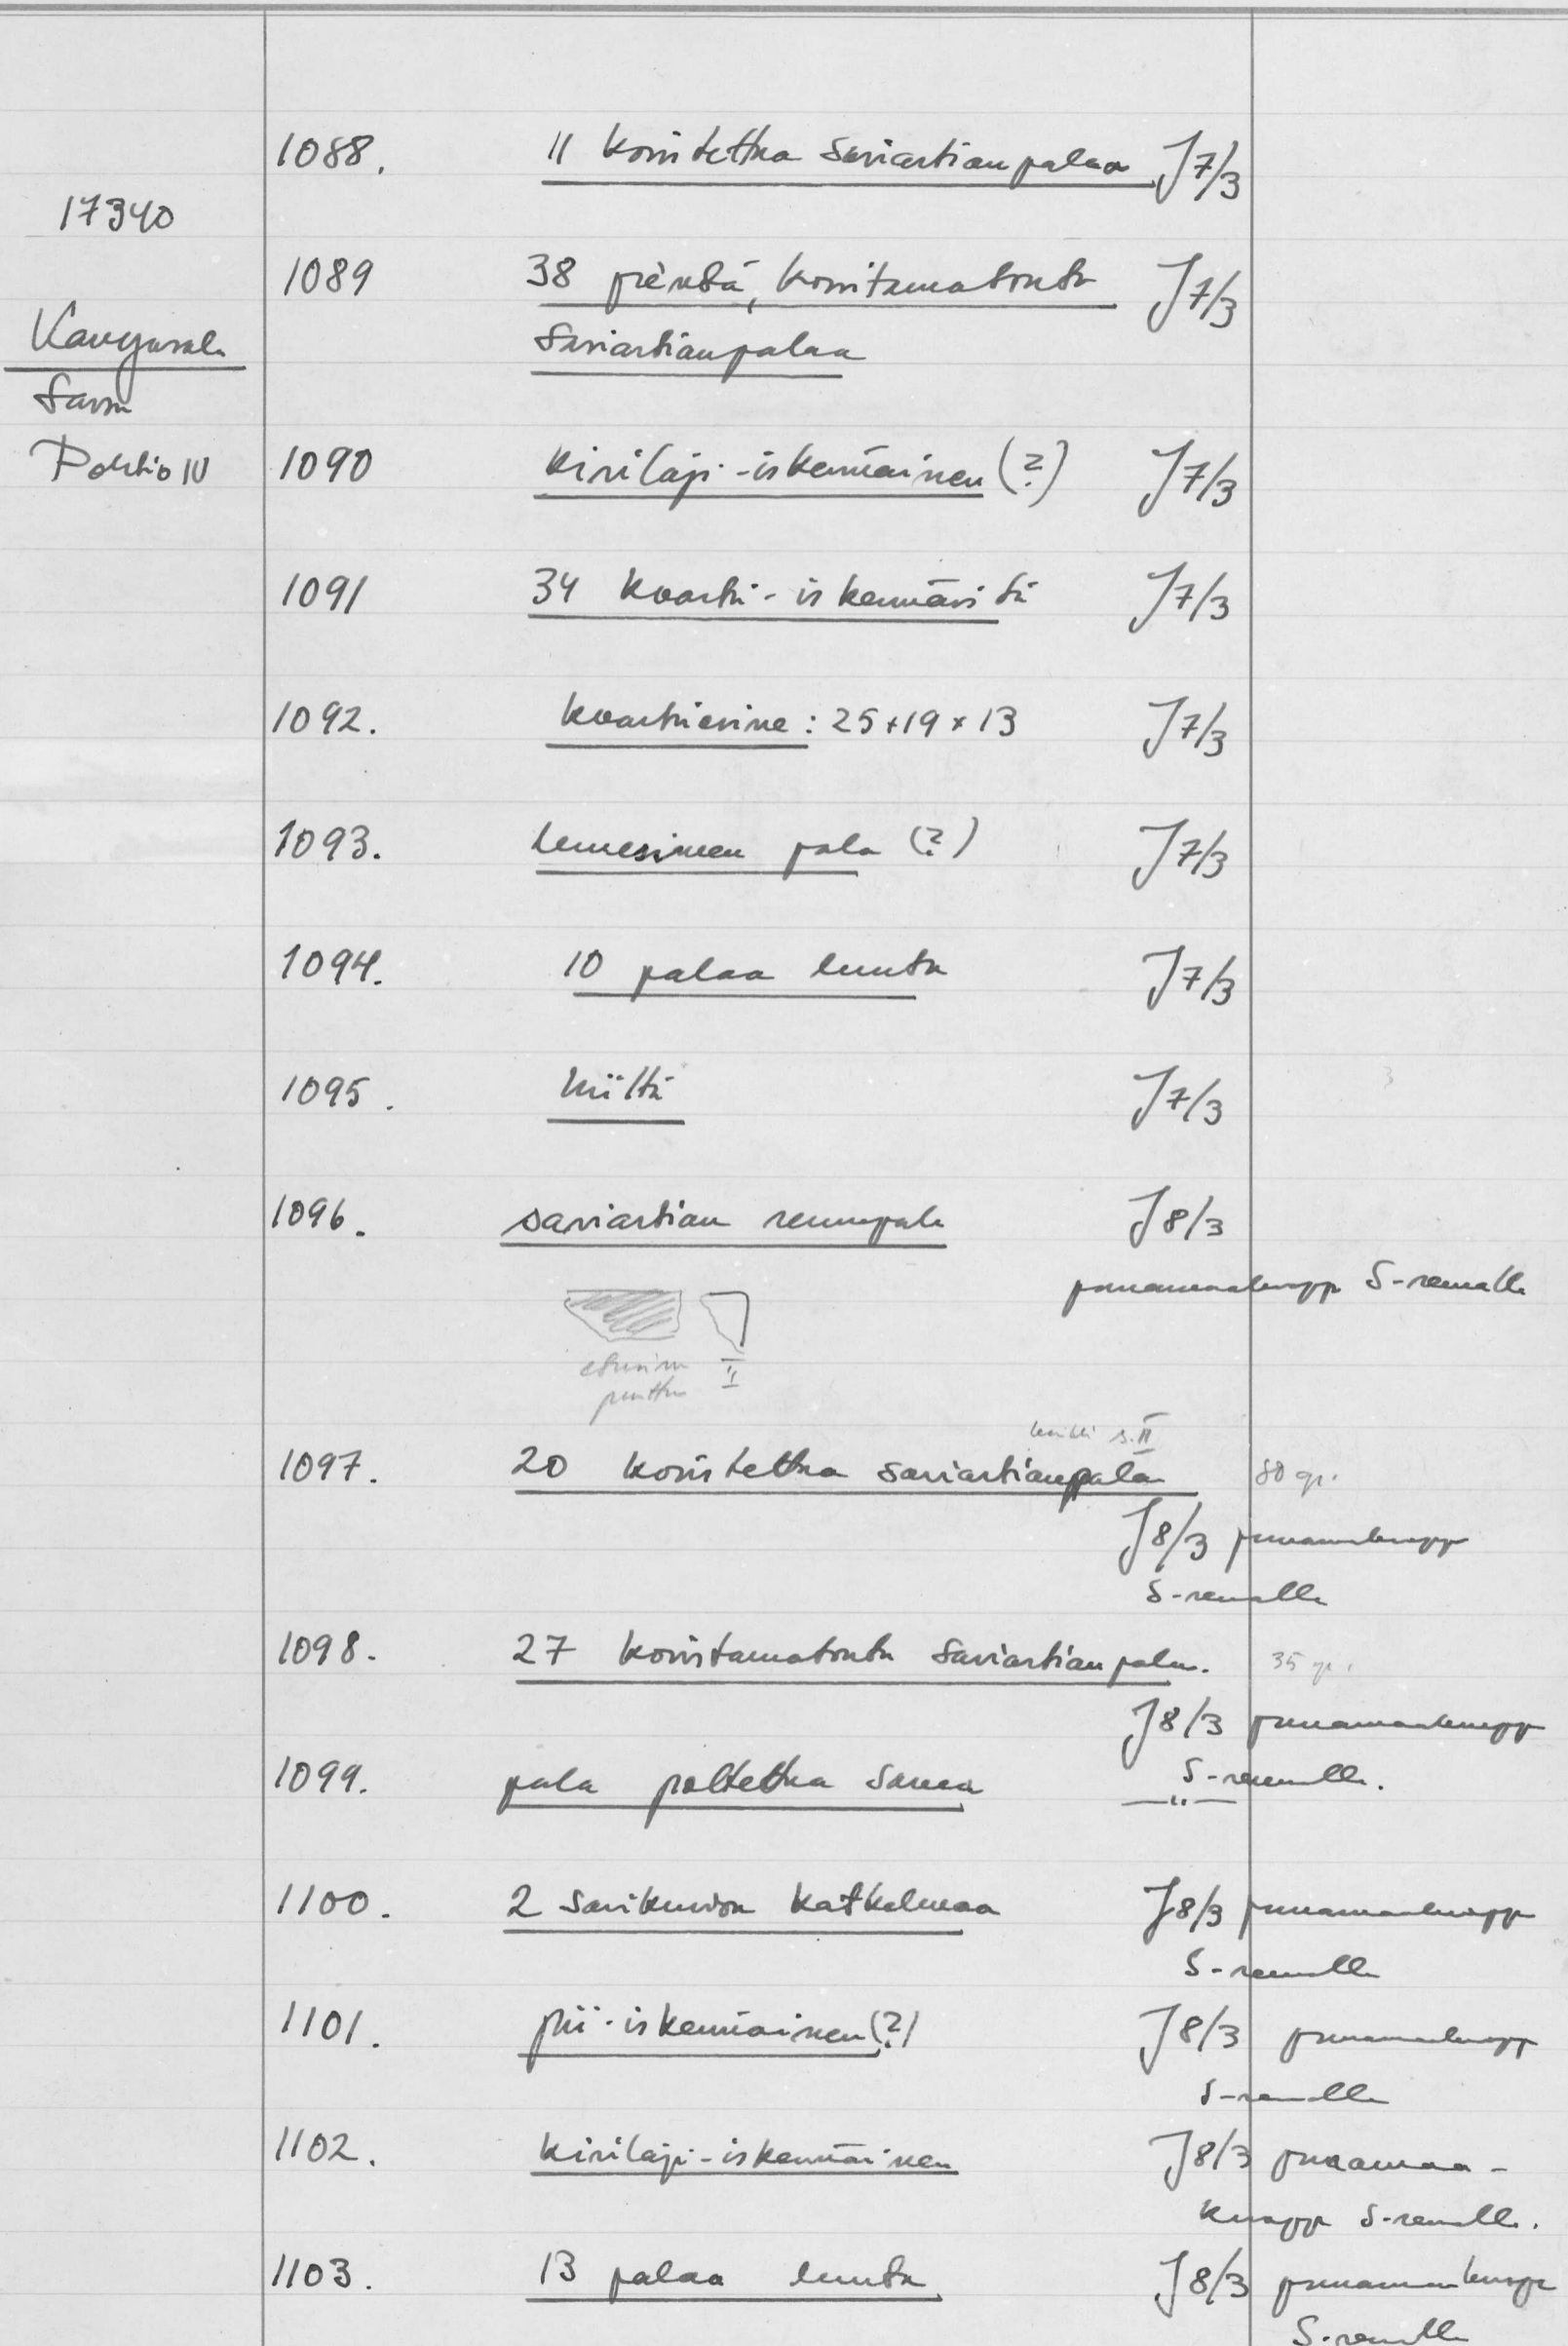 1088. 11 koristettua saviastianpalaa J7/3
17340
1089 38 pientä, koristamatonta J7/3
saviastianpalaa
Kangasala
Sarsa
1090 kivilaji-iskemäinen (?) J7/3
1091 34 kvartsi-iskemäistä J7/3
1092. kvartsiesine: 25×19×13 J7/3
1093. hiomesimen pala (?) J7/3
1094. 10 palaa luuta J7/3
1095. hiiltä J7/3
1096. saviastian reunapala J8/3
punamaakuoppa S-reunalla
etusivu
puuttuu
1097. 20 koristettua saviastianpalaa 80 gr.
J8/3 punamaakuoppa
S-reunalla
1098. 27 koristamatonta saviastianpalaa. 35 gr.
J8/3 punamaakuoppa
S-reunalla.
1099. pala poltettua savea —"—
1100. 2 savikuvion katkelmaa J8/3 punamaakuoppa
S-reunalla
1101. pii-iskemäinen (?) J8/3 punamaakuoppa
S-reunalla
1102. kivilaji-iskemäinen J8/3 punamaa-
kuoppa S-reunalla.
1103. 13 palaa luuta J8/3 punamaakuoppa
S-reunalla